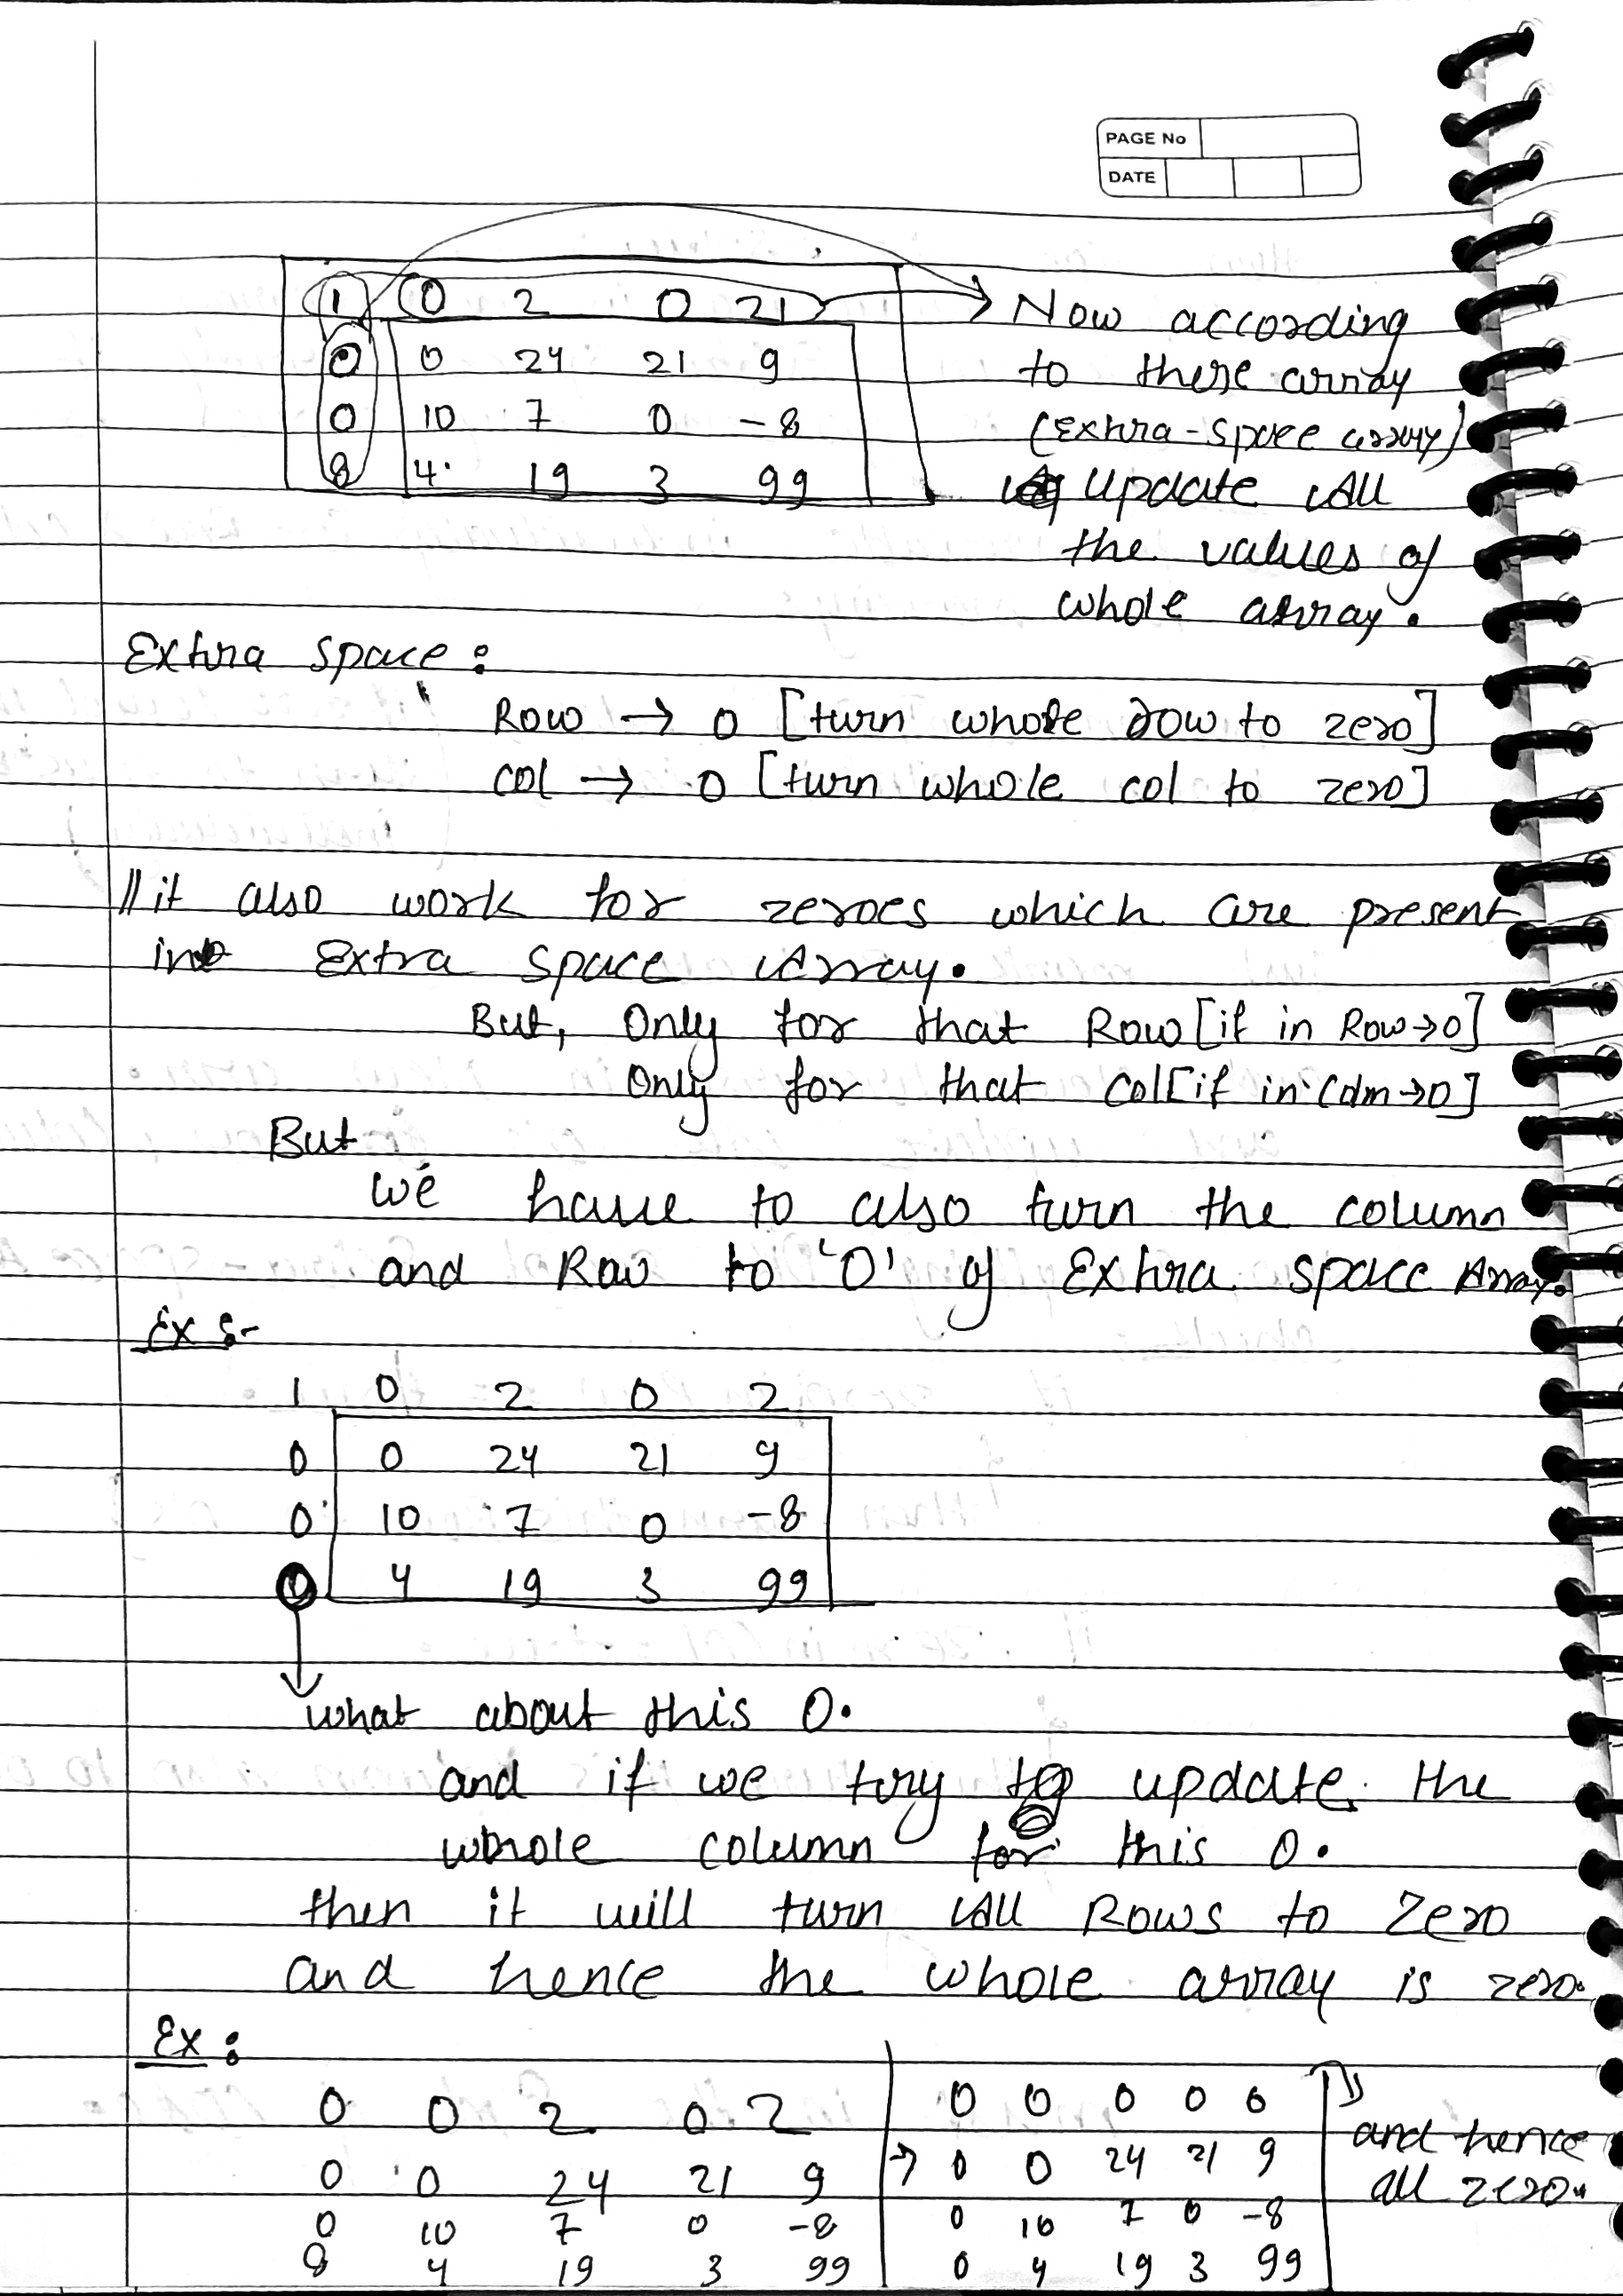 PAGE No
DATE
1 0 2 0 21 → Now according
0 0 24 21 9 to these array
0 10 7 0 -8 (Extra-space array)
8 4 19 3 99 Update All
the values of
whole array.
Extra space:
Row → 0 [turn whole row to zero]
col → 0 [turn whole col to zero]
// it also work for zeroes which are present
in Extra space Array.
But, Only for that Row [if in Row→0]
Only for that Col [if in Colm→0]
But
we have to also turn the column
and Row to '0' of Extra space Array.
Ex :-
1 0 2 0 2
0 0 24 21 9
0 10 7 0 -8
0 4 19 3 99
what about this 0.
and if we try to update the
whole column for this 0.
then it will turn All Rows to Zero
and hence the whole array is zero.
Ex :
0 0 2 0 2
0 0 24 21 9
0 10 7 0 -8
8 4 19 3 99
0 0 0 0 0
→ 0 0 24 21 9
0 10 7 0 -8
0 4 19 3 99
and hence
all zero.